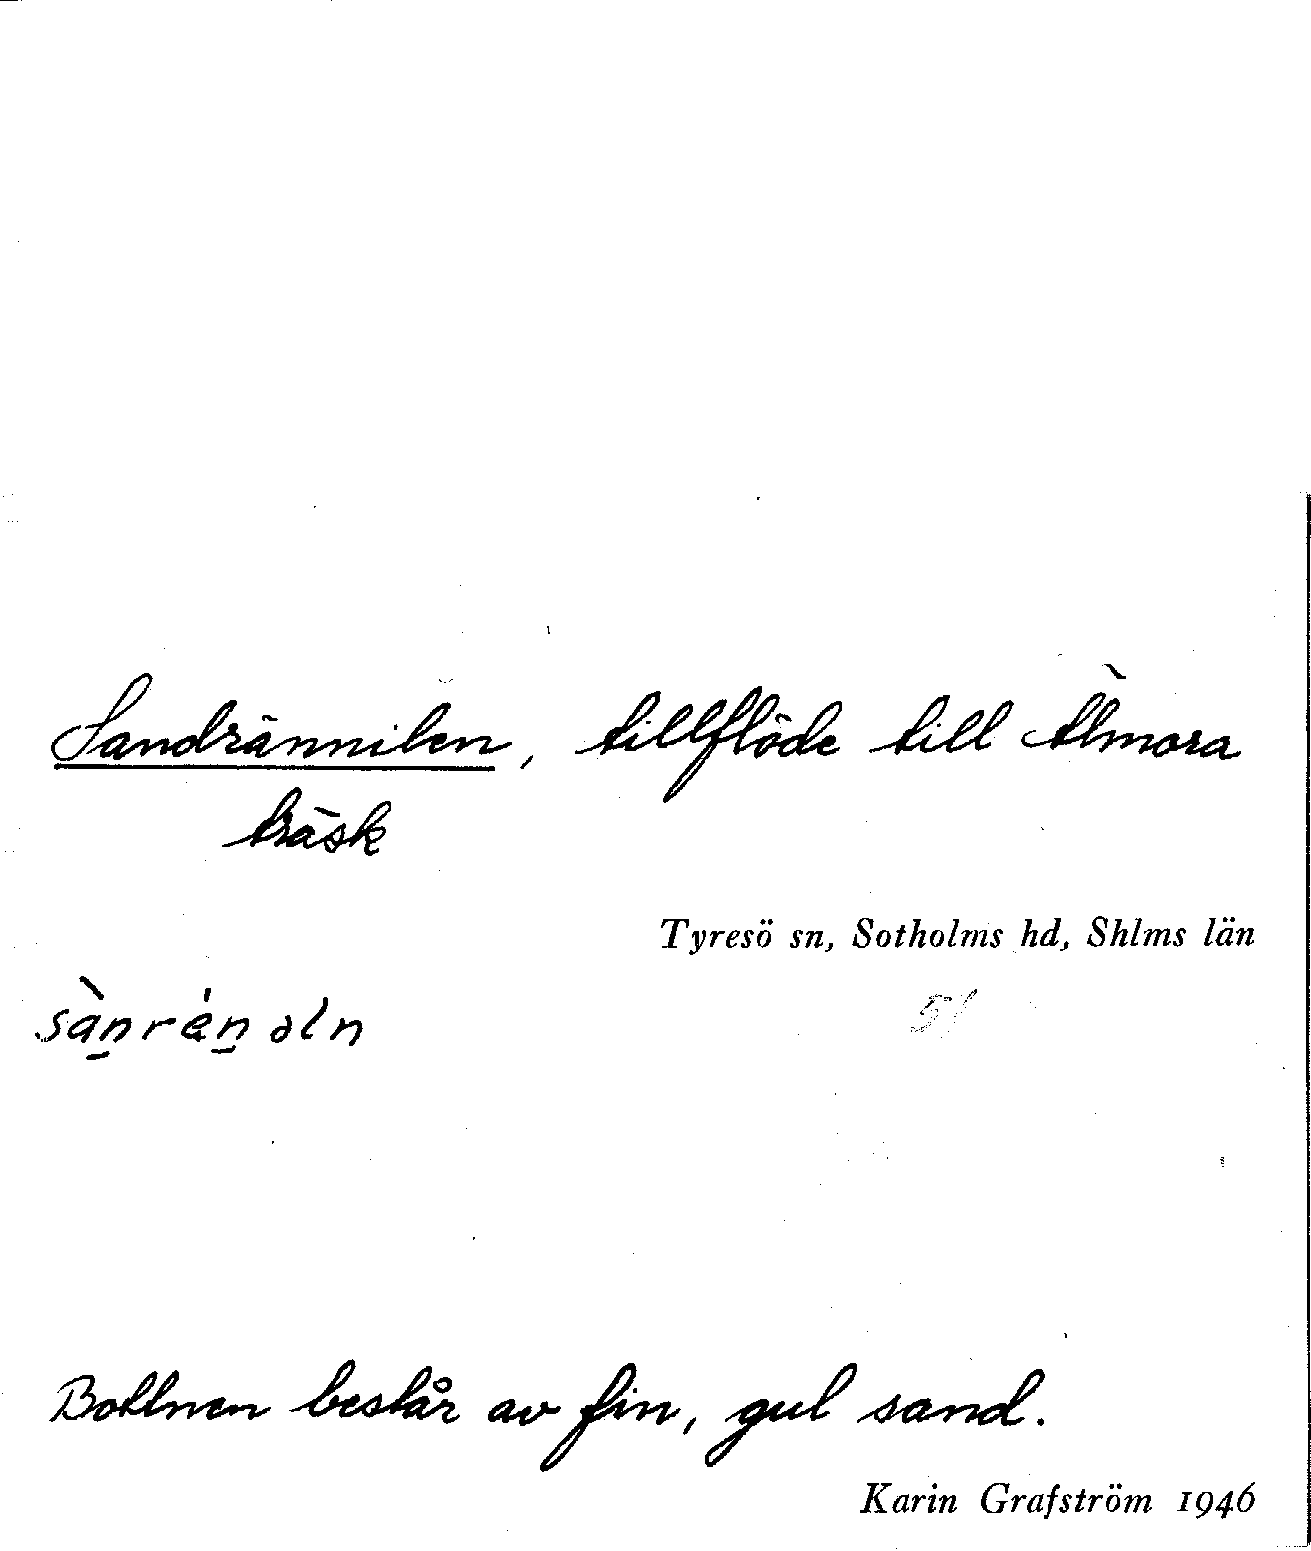 Sandrännilen, tillflöde till Älmora
träsk
Tyresö sn, Sotholms hd, Shlms län
sàn̲rén̲əln
51
Bottnen består av fin, gul sand.
Karin Grafström 1946